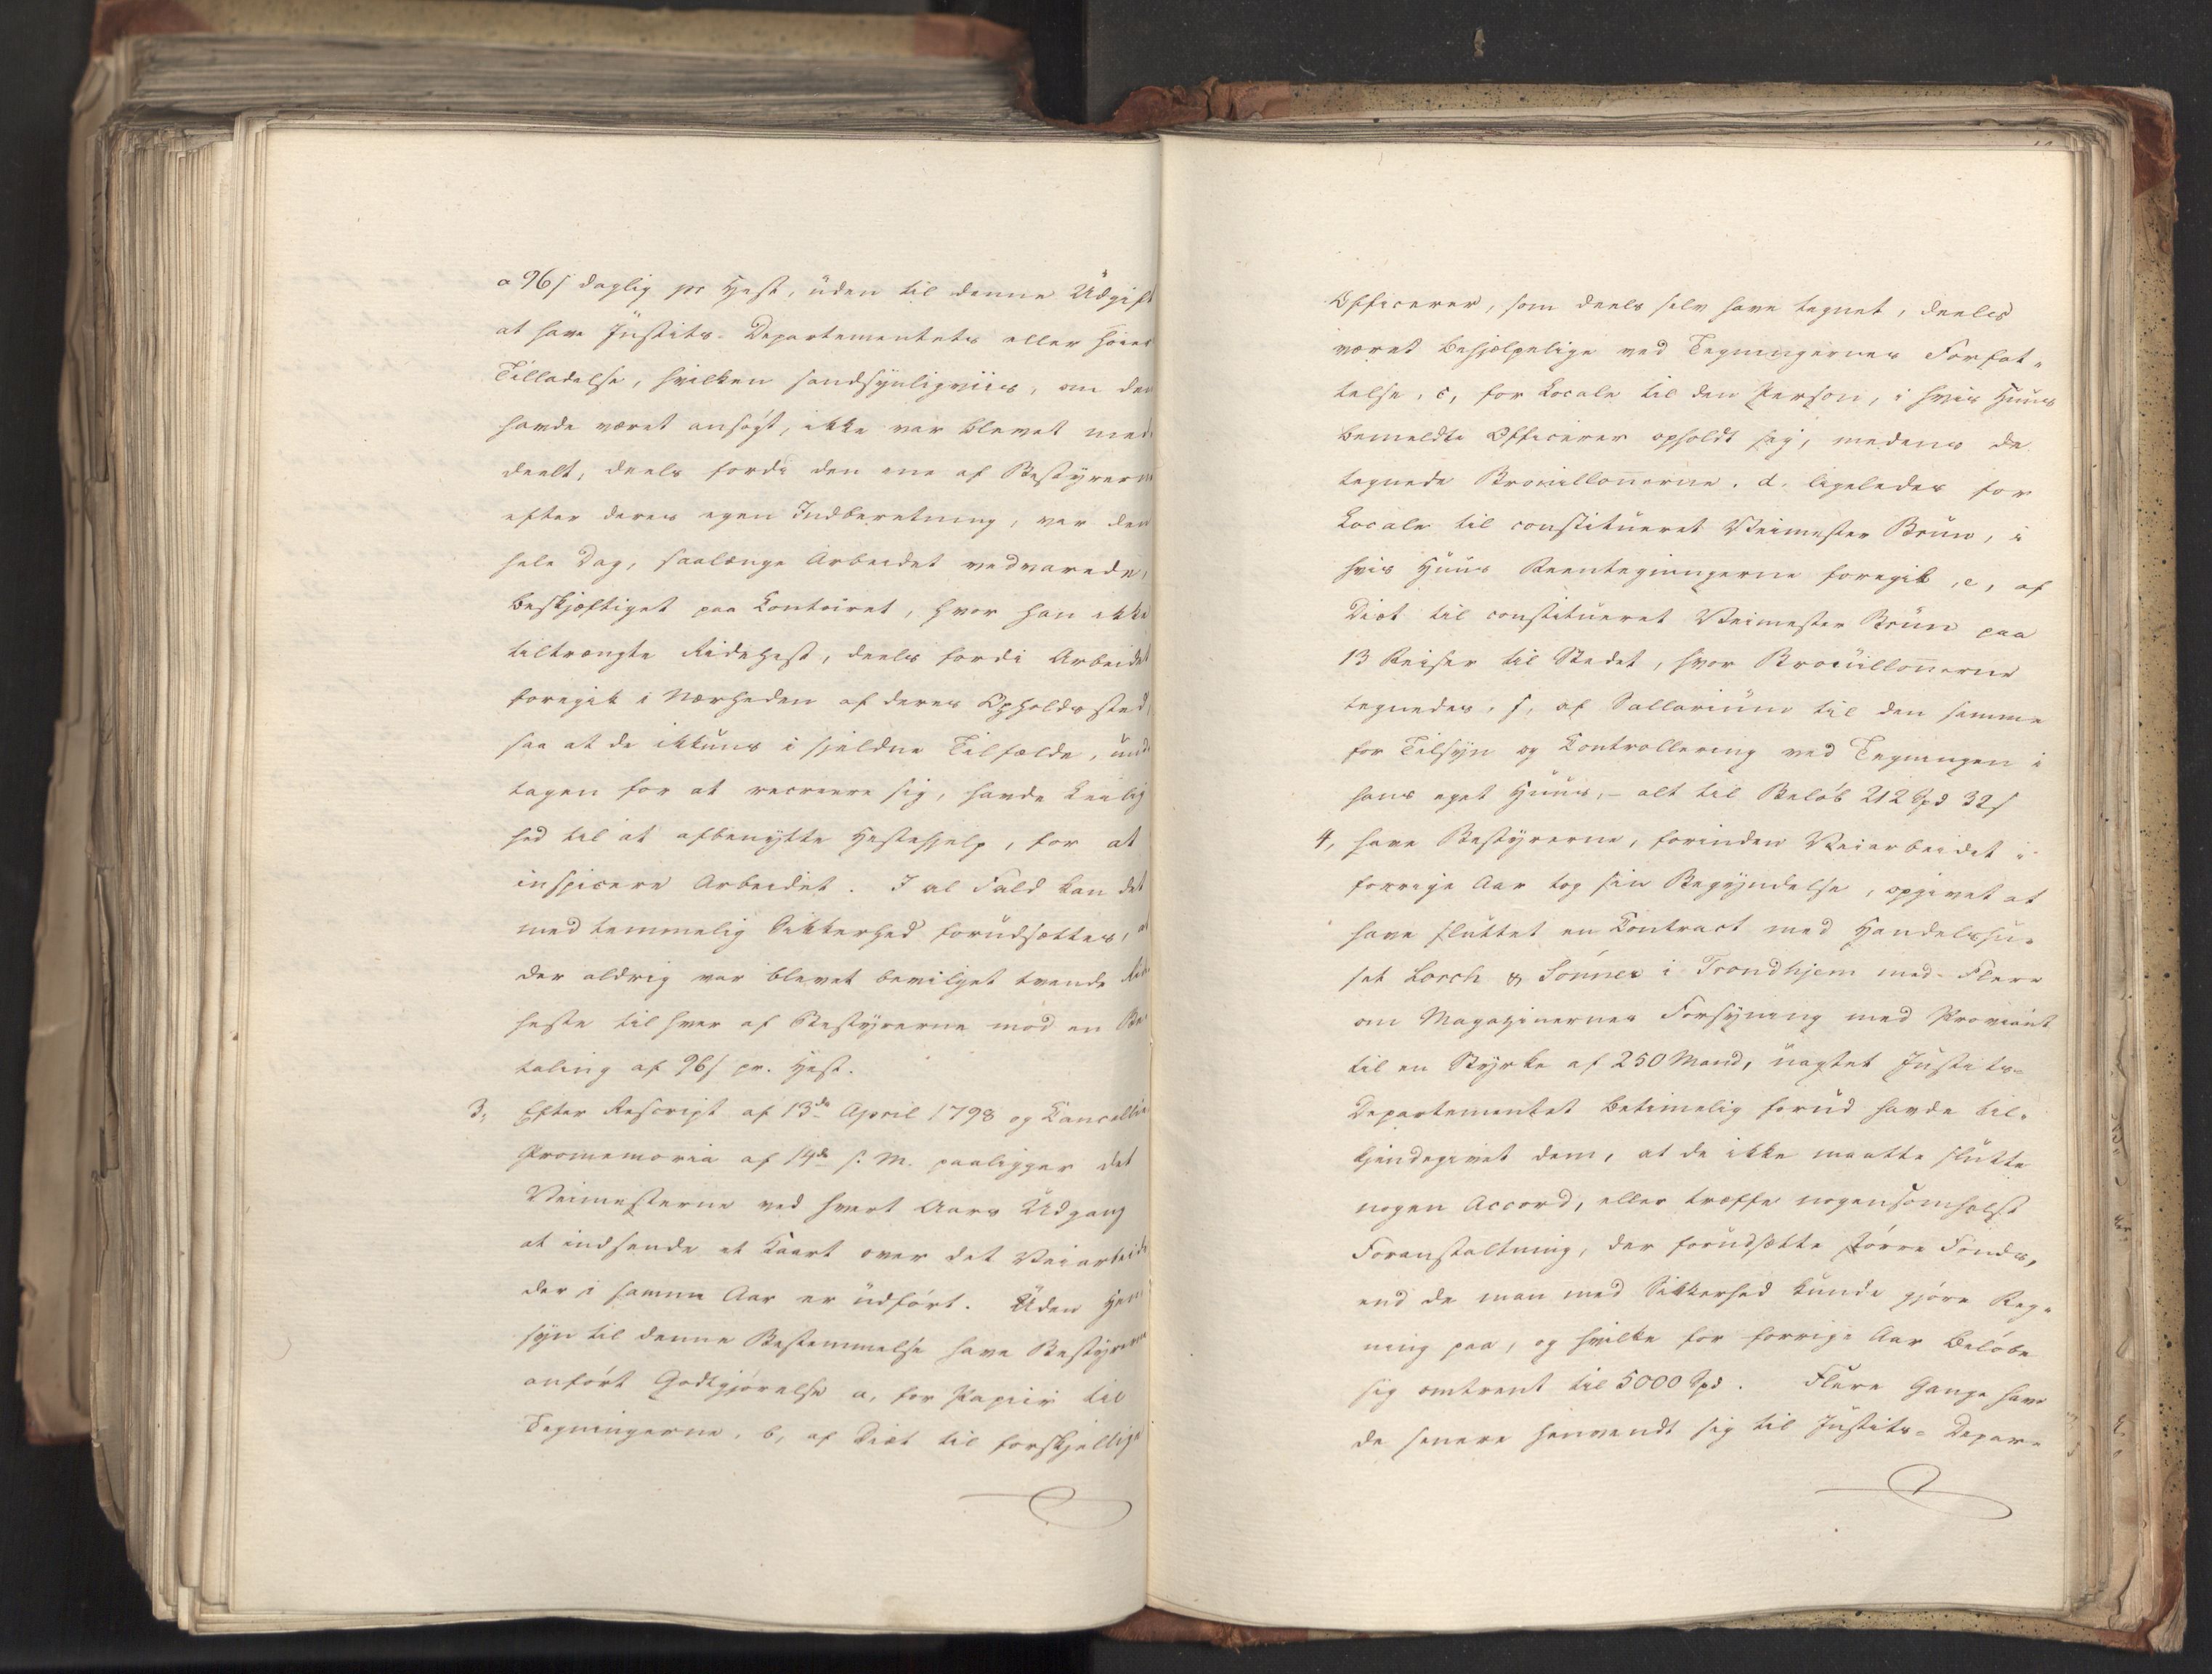 a 96 s daglig pr Hest, uden til denne Udgift
at have Justits-Departementets eller høiere
Tilladelse, hvilken sandsynligviis, om den
havde været ansøgt, ikke var blevet med-
deelt, deels fordi den ene af Bestyrerne
efter deres egen Indberetning, var den
hele Dag, saalænge Arbeidet vedvarede,
beskjæftiget paa Contoiret, hvor han ikke
tiltrængte Ridehest, deels fordi Arbeidet
foregik i Nærheden af deres Opholdssted,
saa at de ikkuns i sjeldne Tilfælde, und-
tagen for at recreere sig, havde Leilig
hed til at afbenytte Hestehjelp, for at
inspicere Arbeidet. I al Fald kan det
med temmelig Sikkerhed forudsættes, at
der aldrig var blevet bevilget tvende Ride
heste til hver af Bestyrerne mod en Be-
taling af 96 s pr. Hest.
3, Efter Rescript af 13de April 1798 og Cancellie
Promemoria af 14de s. M. paaligger det
Veimesterne ved hvert Aars Udgang
at indsende et Kaart over det Veiarbeide
der i samme Aar er udført. Uden Hen-
syn til denne Bestemmelse have Bestyrerne
anført Godtgjørelse a, for Papiir til
Tegningerne, b, af Diæt til forskjellige
Officerer, som deels selv have tegnet, deels
været behjælpelige ved Tegningernes Forfat-
telse, c, for Locale til den Person, i hvis Huus
bemeldte Officerer opholdt sig, medens de
tegnede Brouillonerne. d. ligeledes for
Locale til constitueret Veimester Brun, i
hvis Huus Reentegningerne foregik, e, af
Diæt til constitueret Veimester Brun paa
13 Reiser til Stedet, hvor Brouillonerne
tegnedes, f, af Sallarium til den samme
for Tilsyn og Controllering ved Tegningen i
hans eget Huus, – alt til Beløb 212 Spd 32 s
4, have Bestyrerne, forinden Veiarbeidet i
forrige Aar tog sin Begyndelse, opgivet at
have sluttet en Contract med Handelshu-
set Lorch & Sønner i Trondhjem med Flere
om Magazinernes Forsyning med Proviant
til en Styrke af 250 Mand, uagtet Justits-
Departementet betimelig forud havde til-
kjendegivet dem, at de ikke maatte slutte
nogen Accord, eller træffe nogensomhelst
Foranstaltning, der forudsætte større Fonds,
end de man med Sikkerhed kunde gjøre Reg-
ning paa, og hvilke for forrige Aar beløbe
sig omtrent til 5000 Spd. Flere Gange have
de senere henvendt sig til Justits-Depar-